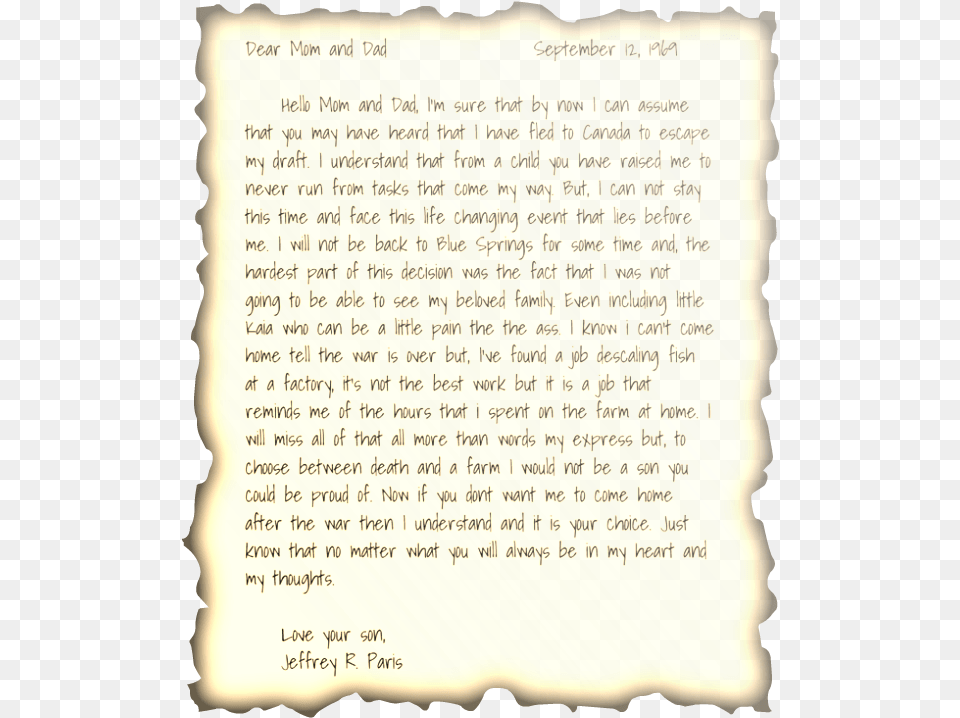 Dear Mom and Dad September 12, 1969
Hello Mom and Dad, I'm sure that by now I can assume
that you may have heard that I have fled to Canada to escape
my draft. I understand that from a child you have raised me to
never run from tasks that come my way. But, I can not stay
this time and face this life changing event that lies before
me. I will not be back to Blue Springs for some time and, the
hardest part of this decision was the fact that I was not
going to be able to see my beloved family. Even including little
Kaia who can be a little pain the the ass. I know i can't come
home tell the war is over but, I've found a job descaling fish
at a factory, it's not the best work but it is a job that
reminds me of the hours that i spent on the farm at home. I
will miss all of that all more than words my express but, to
choose between death and a farm I would not be a son you
could be proud of. Now if you dont want me to come home
after the war then I understand and it is your choice. Just
know that no matter what you will always be in my heart and
my thoughts.
Love your son,
Jeffrey R. Paris